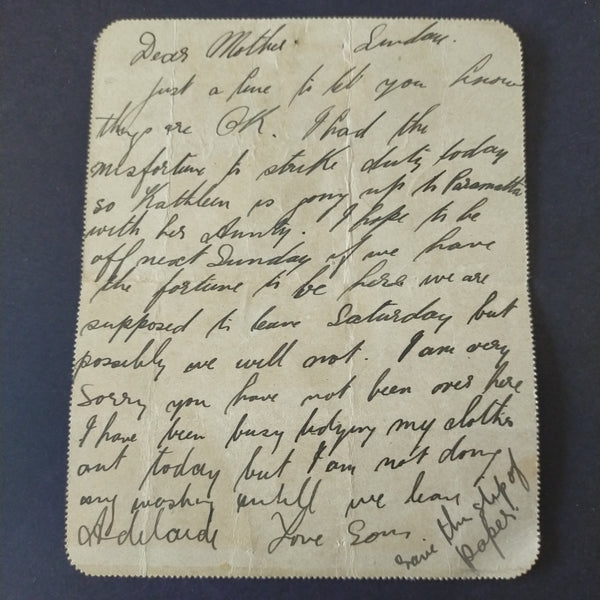 Dear Mother. Sunday.
just a line to let you know
things are OK. I had the
misfortune to strike duty today
so Kathleen is going up to Paramatta
with her Aunty. I hope to be
off next Sunday if we have
the fortune to be here we are
supposed to leave Saturday but
possibly we will not. I am very
Sorry you have not been over here
I have been busy tidying my clothes
out today but I am not doing
any washing untill we leave
Adelaide Love Son
save this slip of
paper.